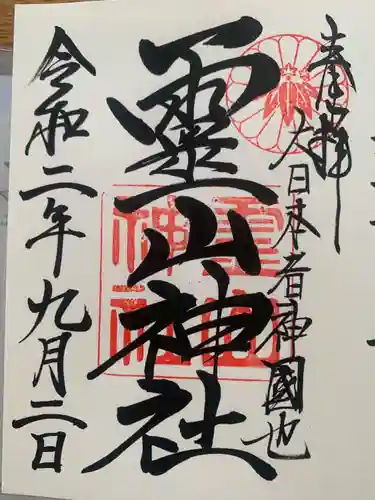 奉拝
大日本者神國也
靈山神社
靈山
神社
令和二年九月二日